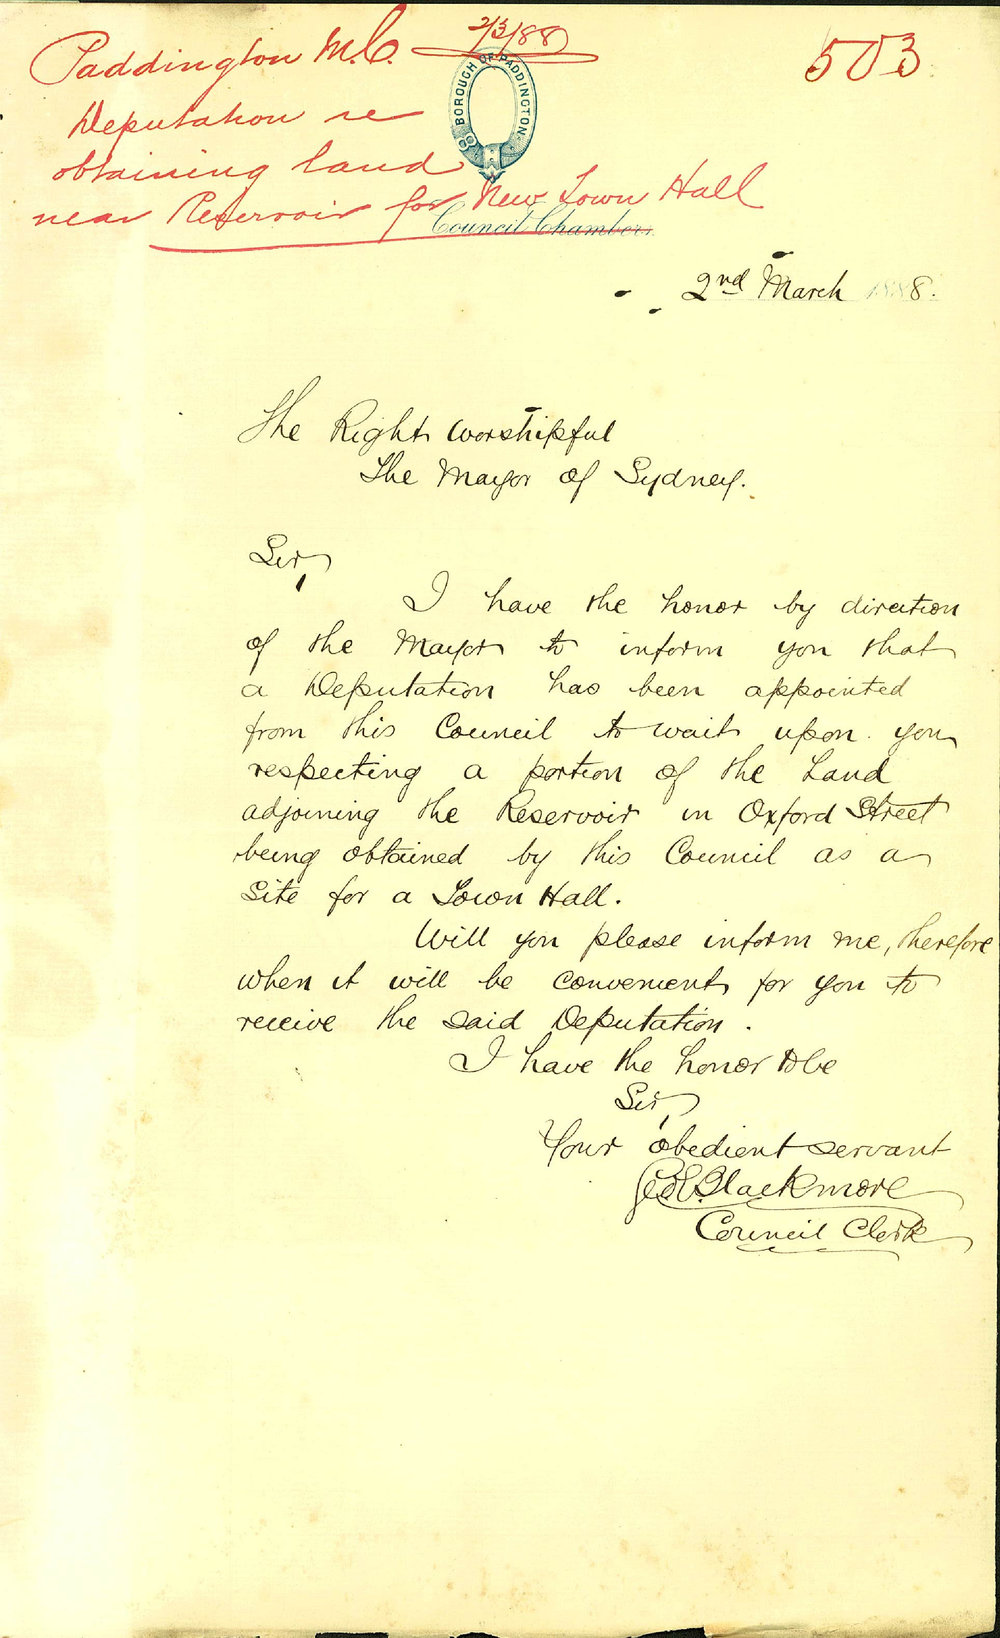 Paddington M.C. 2/3/88
503
Deputation re
obtaining land
near Reservoir for New Town Hall
BOROUGH OF PADDINGTON
Council Chambers,
2nd March 1888.
The Right Worshipful
The Mayor of Sydney.
Sir,
I have the honor by direction
of the Mayor to inform you that
a Deputation has been appointed
from this Council to wait upon you
respecting a portion of the Land
adjoining the Reservoir in Oxford Street
being obtained by this Council as a
Site for a Town Hall.
Will you please inform me, therefore
when it will be convenient for you to
receive the said Deputation.
I have the honor to be
Sir,
Your obedient servant
Geo E. Blackmore
Council Clerk